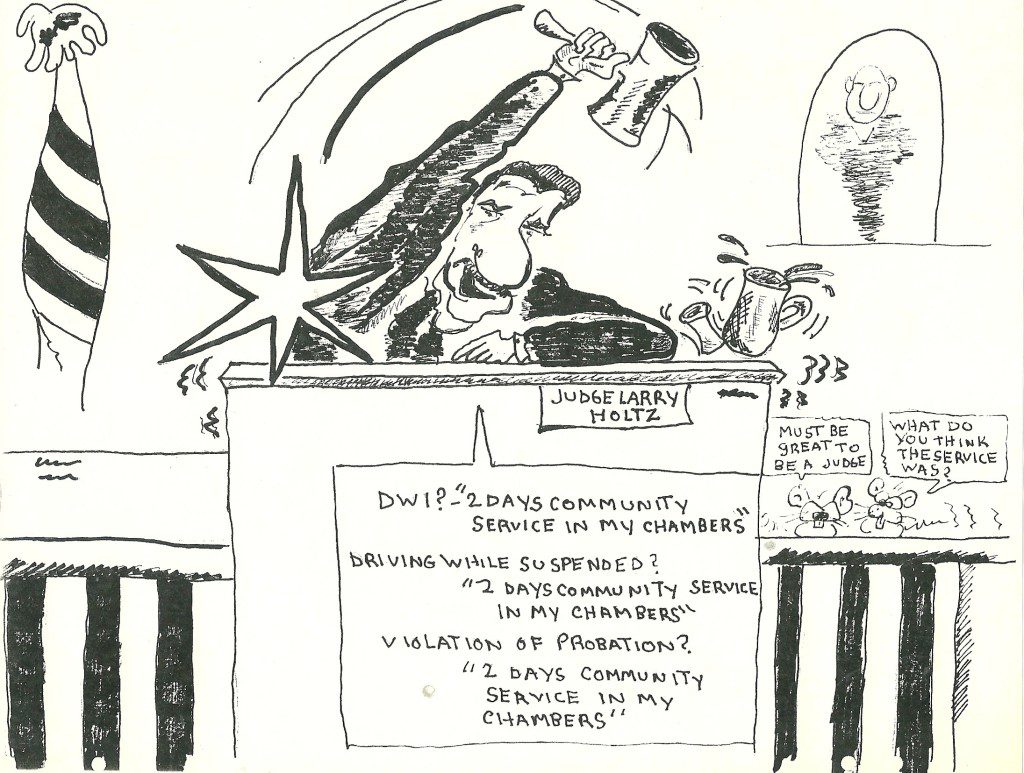 JUDGE LARRY
HOLTZ
MUST BE
GREAT TO
BE A JUDGE
WHAT DO
YOU THINK
THE SERVICE
WAS?
DWI?-"2 DAYS COMMUNITY
SERVICE IN MY CHAMBERS"
DRIVING WHILE SUSPENDED?
"2 DAYS COMMUNITY SERVICE
IN MY CHAMBERS"
VIOLATION OF PROBATION?
"2 DAYS COMMUNITY
SERVICE IN MY
CHAMBERS"